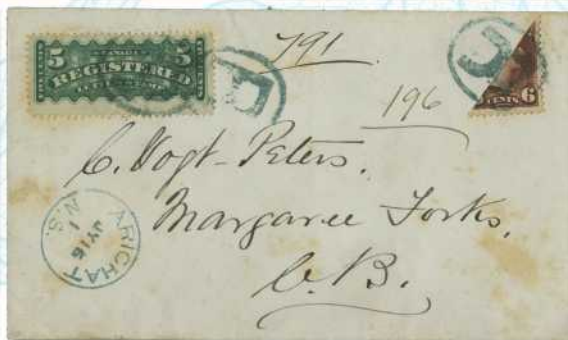 5 REGISTERED 5
R
791
196
6
C. Vogt-Peters.
Margaree Forks,
C.B.
ARICHAT
JY 16
N.S.